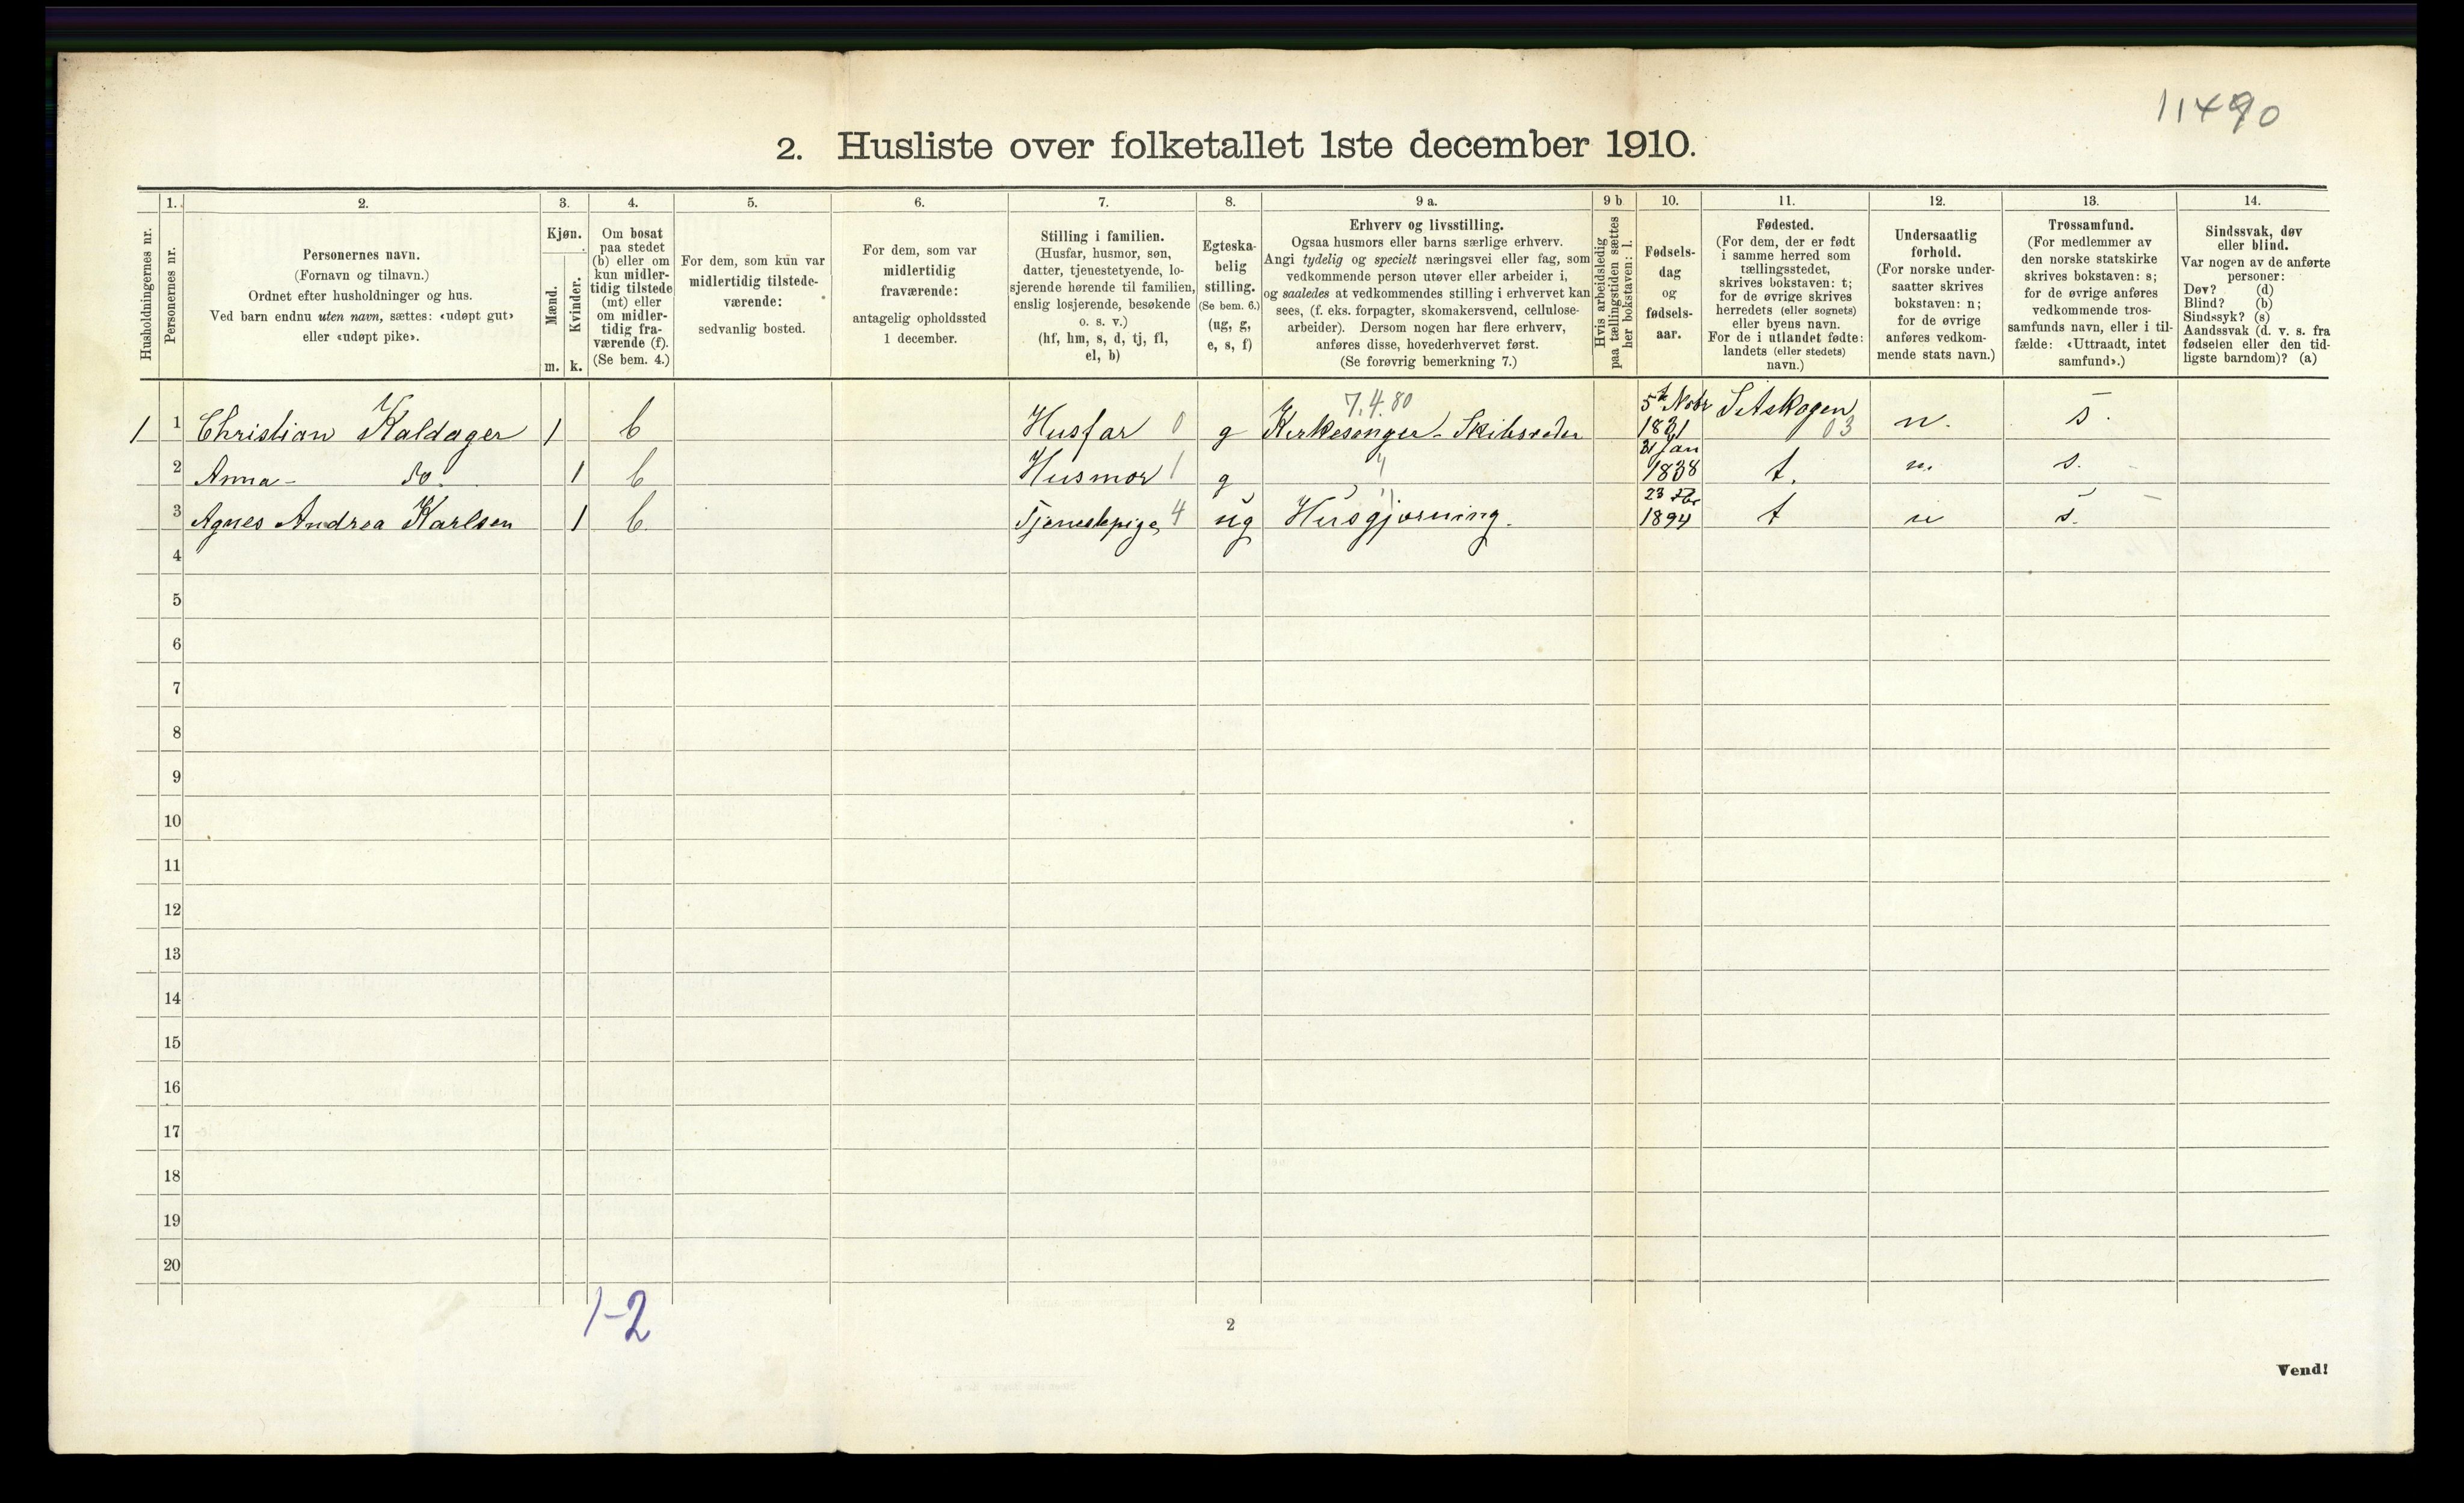 11490
2. Husliste over folketallet 1ste december 1910.
Husholdningernes nr.
1.
Personernes nr.
2.
Personernes navn.
(Fornavn og tilnavn.)
Ordnet efter husholdninger og hus.
Ved barn endnu uten navn, sættes: «udøpt gut»
eller «udøpt pike».
3.
Kjøn.
Mænd.
Kvinder.
m. k.
4.
Om bosat
paa stedet
(b) eller om
kun midler-
tidig tilstede
(mt) eller
om midler-
tidig fra-
værende (f).
(Se bem. 4.)
5.
For dem, som kun var
midlertidig tilstede-
værende:
sedvanlig bosted.
6.
For dem, som var
midlertidig
fraværende:
antagelig opholdssted
1 december.
7.
Stilling i familien.
(Husfar, husmor, søn,
datter, tjenestetyende, lo-
sjerende hørende til familien,
enslig losjerende, besøkende
o. s. v.)
(hf, hm, s, d, tj, fl,
el, b)
8.
Egteska-
belig
stilling.
(Se bem. 6.)
(ug, g,
e, s, f)
9 a.
Erhverv og livsstilling.
Ogsaa husmors eller barns særlige erhverv.
Angi tydelig og specielt næringsvei eller fag, som
vedkommende person utøver eller arbeider i,
og saaledes at vedkommendes stilling i erhvervet kan
sees, (f. eks. forpagter, skomakersvend, cellulose-
arbeider). Dersom nogen har flere erhverv,
anføres disse, hovederhvervet først.
(Se forøvrig bemerkning 7.)
9 b
Hvis arbeidsledig
paa tællingstiden sættes
her bokstaven: l.
10.
Fødsels-
dag
og
fødsels-
aar.
11.
Fødested.
(For dem, der er født
i samme herred som
tællingsstedet,
skrives bokstaven: t;
for de øvrige skrives
herredets (eller sognets)
eller byens navn.
For de i utlandet fødte:
landets (eller stedets)
navn.)
12.
Undersaatlig
forhold.
(For norske under-
saatter skrives
bokstaven: n;
for de øvrige
anføres vedkom-
mende stats navn.)
13.
Trossamfund.
(For medlemmer av
den norske statskirke
skrives bokstaven: s;
for de øvrige anføres
vedkommende tros-
samfunds navn, eller i til-
fælde: «Uttraadt, intet
samfund».)
14.
Sindssvak, døv
eller blind.
Var nogen av de anførte
personer:
Døv? (d)
Blind? (b)
Sindssyk? (s)
Aandssvak (d. v. s. fra
fødselen eller den tid-
ligste barndom)? (a)
7.4.80
1 1 Christian Kaldager 1 b Husfar 0 g Kirkesanger - Skibsreder 5te Nobr 1831 Sitskogen 03 n. s.
2 Anna - do. 1 b Husmor 1 g " 21 Jan 1838 t. n. s.
3 Agnes Andrea Karlsen 1 b. Tjenestepige 4 ug Husgjørning. 23 1894 t n s.
4
5
6
7
8
9
10
11
12
13
14
15
16
17
18
19
20
1-2
2
Vend!